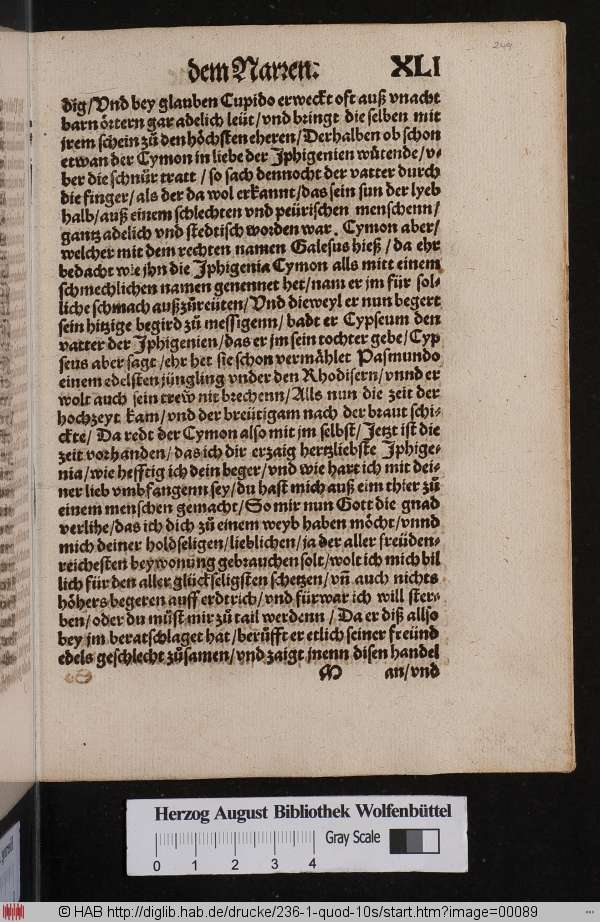 244
dem Narren: XLI
dig/Vnd bey glauben Cupido erweckt oft auß vnacht
barn oͤrtern gar adelich leüt/vnd bringt die selben mit
jrem schein zů den hoͤchsten eheren/Derhalben ob schon
etwan der Cymon in liebe der Jphigenien wůtende/v-
ber die schnůr tratt/so sach dennocht der vatter durch
die finger/als der da wol erkannt/das sein sun der lyeb
halb/auß einem schlechten vnd peürischen menschenn/
gantz adelich vnd stedtisch worden war. Cymon aber/
welcher mit dem rechten namen Galesus hieß/da ehr
bedacht wie jhn die Jphigenia Cymon alls mitt einem
schmechlichen namen genennet het/nam er jm für sol-
liche schmach außzůreüten/Vnd dieweyl er nun begert
sein hitzige begird zů messigenn/badt er Cypseum den
vatter der Jphigenien/das er jm sein tochter gebe/Cyp
seus aber sagt/ehr het sie schon vermåhlet Pasmundo
einem edelsten jüngling vnder den Rhodisern/vnnd er
wolt auch sein trew nit brechenn/Alls nun die zeit der
hochzeyt kam/vnd der breütigam nach der braut schi-
ckte/Da redt der Cymon also mit jm selbst/Jetzt ist die
zeit vorhanden/das ich dir erzaig hertzliebste Jphige-
nia/wie hefftig ich dein beger/vnd wie hart ich mit dei-
ner lieb vmbfangenn sey/du hast mich auß eim thier zů
einem menschen gemacht/So mir nun Gott die gnad
verlihe/das ich dich zů einem weyb haben moͤcht/vnnd
mich deiner holdseligen/lieblichen/ja der aller freüden-
reichesten beywonung gebrauchen solt/wolt ich mich bil
lich für den aller glückseligsten schetzen/vñ auch nichts
hoͤhers begeren auff erdtrich/vnd fürwar ich will ster-
ben/oder du můst mir zů tail werdenn/Da er diß allso
bey jm beratschlaget hat/berüfft er etlich seiner freünd
edels geschlecht zůsamen/vnd zaigt jnenn disen handel
M an/vnd
Herzog August Bibliothek Wolfenbüttel
0 1 2 3 4 Gray Scale
© HAB http://diglib.hab.de/drucke/236-1-quod-10s/start.htm?image=00089